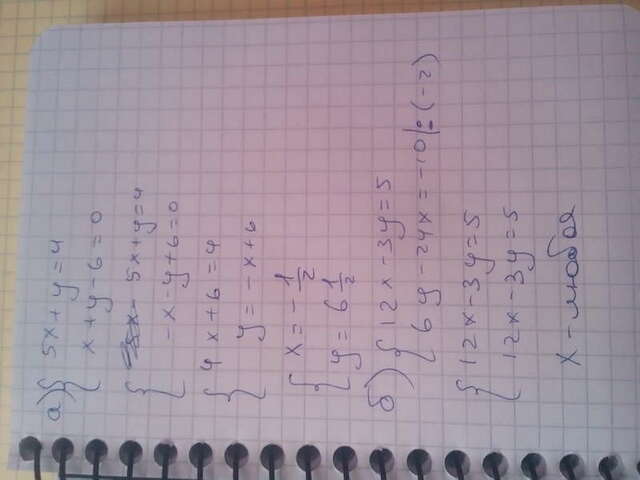 а) { 5x+y=4
x+y-6=0
{ 5x+y=4
-x-y+6=0
{ 4x+6=4
y=-x+6
{ x=-1/2
y=6 1/2
б) { 12x-3y=5
6y-24x=-10 |:(-2)
{ 12x-3y=5
12x-3y=5
x-любая